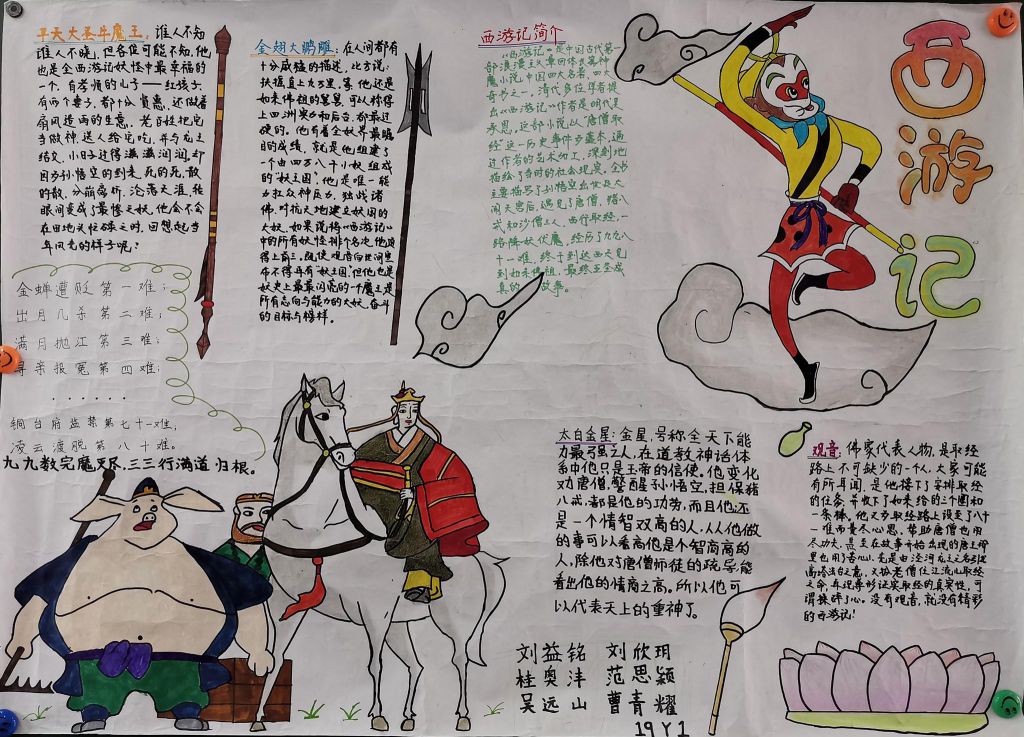 平天大圣牛魔王：谁人不知
谁人不晓，但各位可能不知，他
也是全西游记妖怪中最幸福的
一个，有孝顺的儿子——红孩子，
有两个妻子，都十分贤惠，还做着
扇风造雨的生意，老百姓把它
当做神，送人给它吃，并与龙王
结交，小日子过得滋滋润润，却
因为孙悟空的到来，死的死，散
的散，分崩离析，沦落天涯，转
眼间变成了最惨之妖，他会不会
在田地头忙碌之时，回想起当
年风光的样子呢？
金蝉遭贬第一难；
出月几杀第二难；
满月抛江第三难；
寻亲报冤第四难；
······
铜台府监禁第七十一难，
凌云渡脱第八十难。
九九数完魔灭尽，三三行满道归根。
金翅大鹏雕：在人间都有
十分威猛的描述，比方说：
扶摇直上九万里，
如来佛祖的舅舅，可以称得
上四洲实力和后台，都最过
硬的。他有着全妖界最瞩
目的成绩，就是他组建了
一个由四万八千小妖组成
的“妖王国”，他是唯一能
力扛众神压力，独战诸
佛，
大妖，如果说将《西游记》
中的所有妖怪排个名次，他
得上前三，
布不得再有“妖王国”，但他也是
妖史上最最闪亮的一个魔王，是
所有志向与能力的大妖，奋斗
的目标与榜样。
西游记简介
《西游记》是中国古代第一
部浪漫主义章回体长篇神
魔小说，中国四大名著，四大
奇书之一，
承恩，这部小说以“唐僧取
经”这一历史事件为蓝本，通
过作者的艺术加工，深刻地
描绘了当时的社会现实，全书
主要描写了孙悟空出世及大
闹天宫后，遇见了唐僧，猪八
戒和沙僧三人，西行取经，一
路降妖伏魔，经历了九九八
十一难，终于到达西天见
到如来佛祖，最终五圣成
真的故事。
西
游
记
太白金星：金星，号称全天下能
力最强之人，在道教神话体
系中他只是玉帝的信使。他变化
对唐僧，擎醒孙悟空，担保猪
八戒，都是他的功劳，而且他还
是一个情智双高的人，从他做
的事可以看高他是个智商高的
人，除他对唐僧师徒的疏导能
看出他的情商之高。所以他可
以代表天上的重神了。
观音：佛家代表人物，是取经
路上不可缺少的一个人，大家可能
有所耳闻，是他接下了安排取经
的任务，并收下了如来给的三个圈和
一条棒，他又为取经路上设至了八十
一难，
尽功夫，甚至在故事开始出现的唐王那
里也用了苦心，
之命，再现尊形证实取经的真实性，可
谓操碎了心。没有观音，就没有精彩
的西游记！
刘益铭 刘欣玥
桂奥沣 范思颖
吴远山 曹青耀
19 Y 1